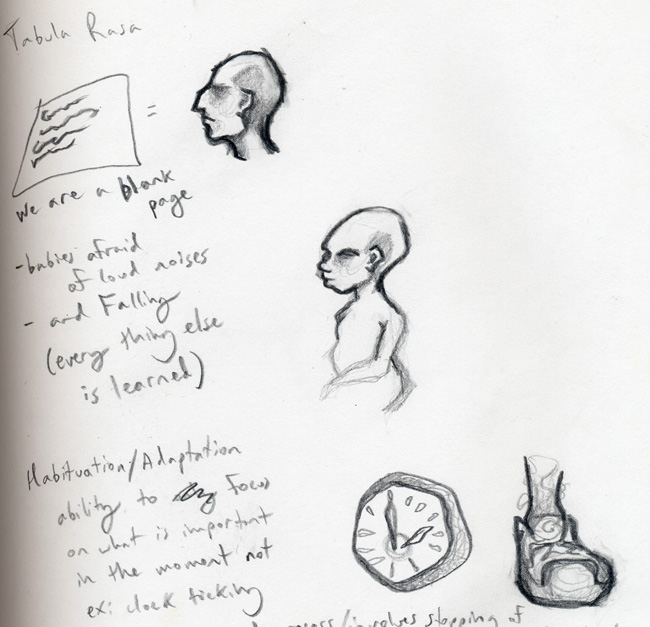 Tabula Rasa
=
we are a blank
page
-babies afraid
of loud noises
- and Falling
(every thing else
is learned)
Habituation/Adaptation
ability to focus
on what is important
in the moment not
ex: clock ticking
stopping of